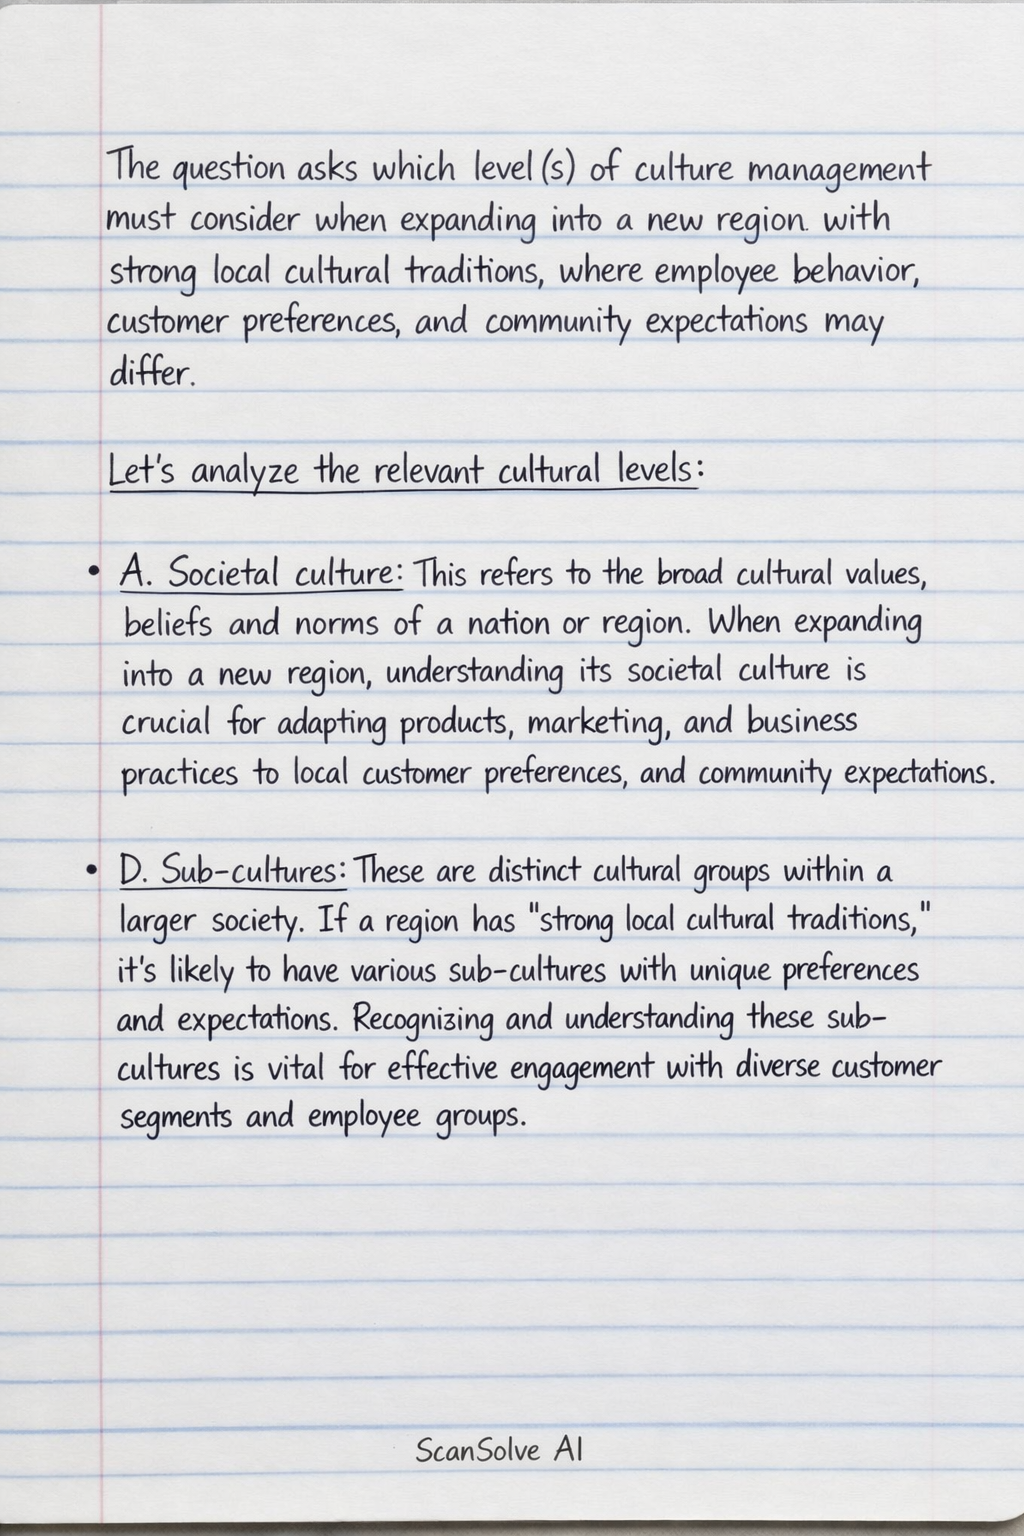 The question asks which level(s) of culture management
must consider when expanding into a new region. with
strong local cultural traditions, where employee behavior,
customer preferences, and community expectations may
differ.
Let's analyze the relevant cultural levels:
• A. Societal culture: This refers to the broad cultural values,
beliefs and norms of a nation or region. When expanding
into a new region, understanding its societal culture is
crucial for adapting products, marketing, and business
practices to local customer preferences, and community expectations.
• D. Sub-cultures: These are distinct cultural groups within a
larger society. If a region has "strong local cultural traditions,"
it's likely to have various sub-cultures with unique preferences
and expectations. Recognizing and understanding these sub-
cultures is vital for effective engagement with diverse customer
segments and employee groups.
ScanSolve AI